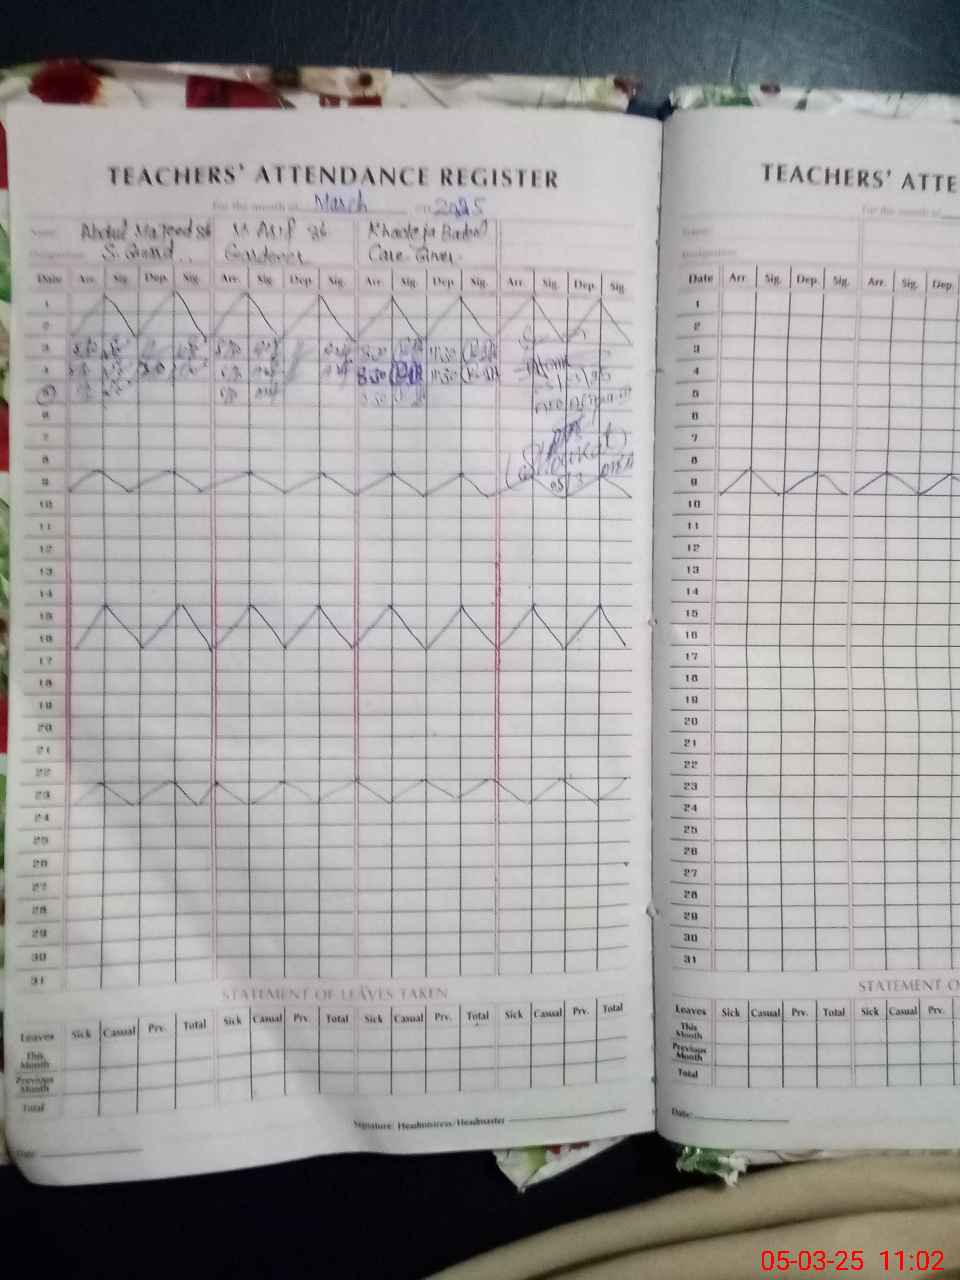 TEACHERS' ATTENDANCE REGISTER
For the month of March 2025
Name: Abdul Majeed sb M Arif sb Khadeja Batool
Designation: S. Guard Gardener Care Giver
Date Arr. Sig. Dep. Sig. Arr. Sig. Dep. Sig. Arr. Sig. Dep. Sig. Arr. Sig. Dep. Sig.
1
2
3 8:30 11:30
4 8:30 11:30
5
6
7
8
9
10
11
12
13
14
15
16
17
18
19
20
21
22
23
24
25
26
27
28
29
30
31
STATEMENT OF LEAVES TAKEN
Leaves Sick Casual Prv. Total Sick Casual Prv. Total Sick Casual Prv. Total Sick Casual Prv. Total
This Month
Previous Month
Total
Signature: Headmistress/Headmaster
Date:
TEACHERS' ATTE
For the month of
Name:
Designation:
Date Arr. Sig. Dep. Sig. Arr. Sig. Dep.
1
2
3
4
5
6
7
8
9
10
11
12
13
14
15
16
17
18
19
20
21
22
23
24
25
26
27
28
29
30
31
STATEMENT O
Leaves Sick Casual Prv. Total Sick Casual Prv.
This Month
Previous Month
Total
Date:
05-03-25 11:02